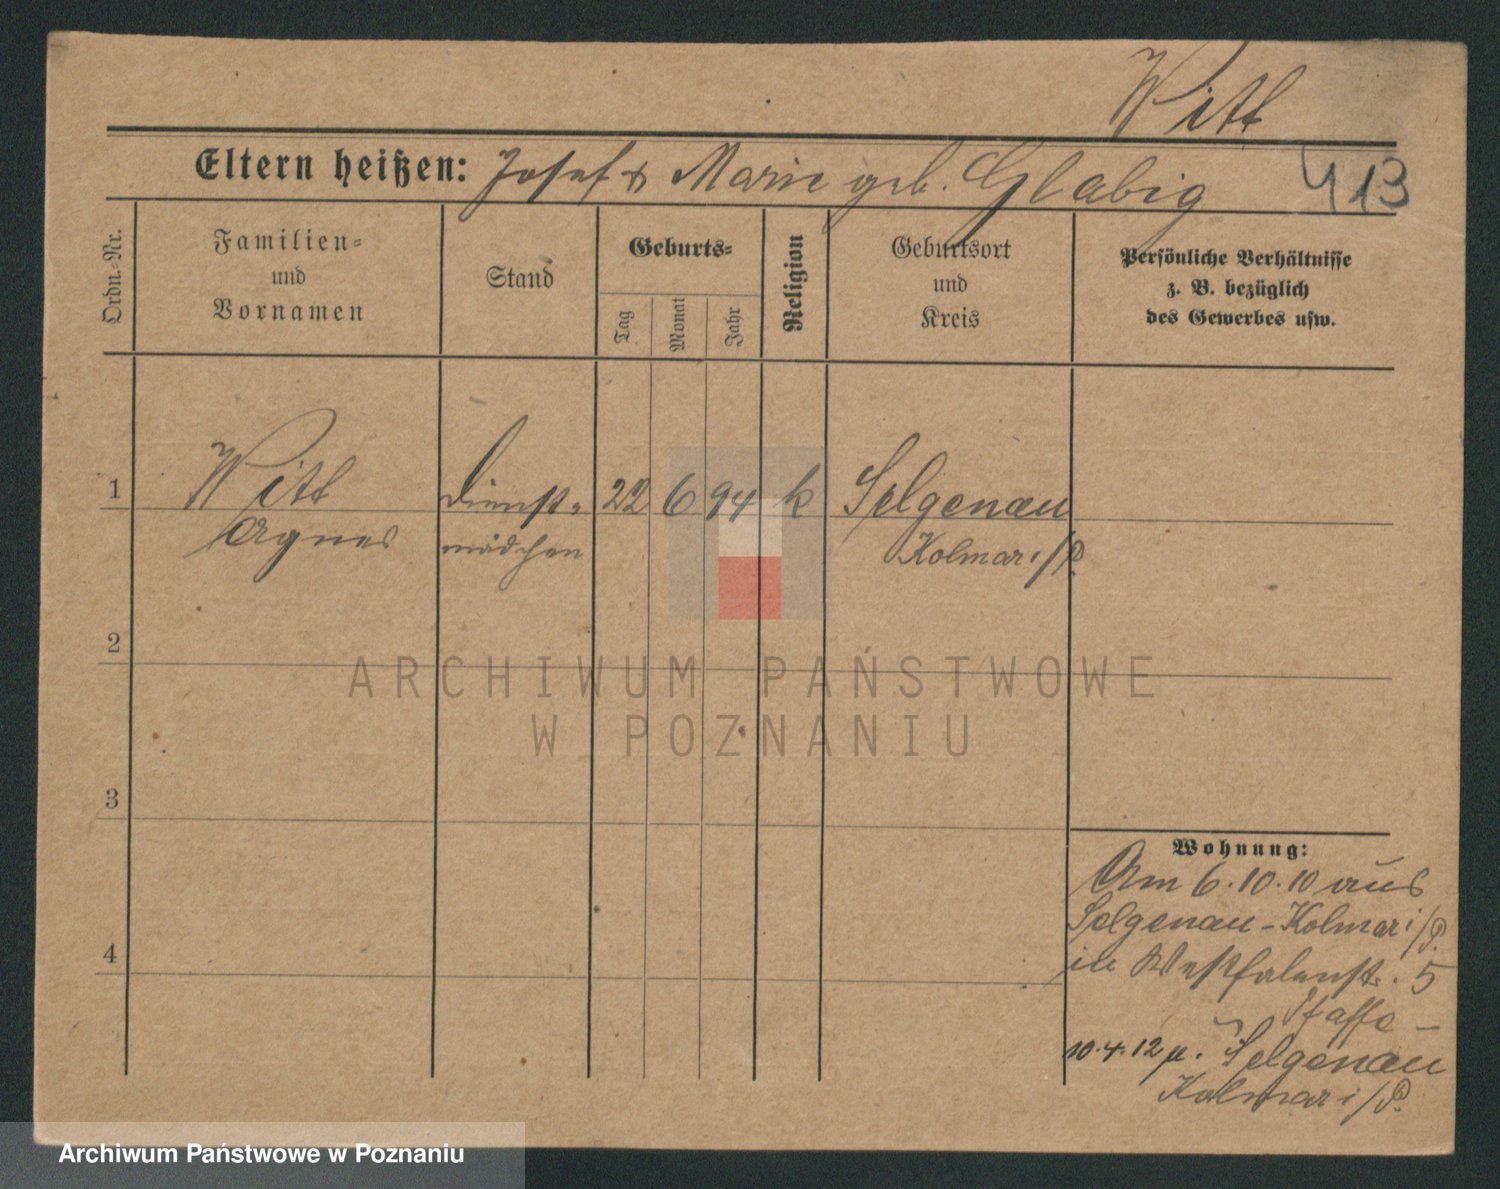 Witt
Eltern heißen: Josef u Marie geb. Glabig 413
Ordn.-Nr.
Familien-
und
Vornamen
Stand
Geburts-
Tag
Monat
Jahr
Religion
Geburtsort
und
Kreis
Persönliche Verhältnisse
z. B. bezüglich
des Gewerbes usw.
1 Witt Dienst- 22 6 94 k Selgenau
Agnes mädchen Kolmar i/P.
2
3
4
Wohnung:
Am 6.10.10 aus
Selgenau-Kolmar i/P.
in Westfalenst. 5
10.4.12 n. Selgenau
Kolmar i/P.
ARCHIWUM PAŃSTWOWE
W POZNANIU
Archiwum Państwowe w Poznaniu